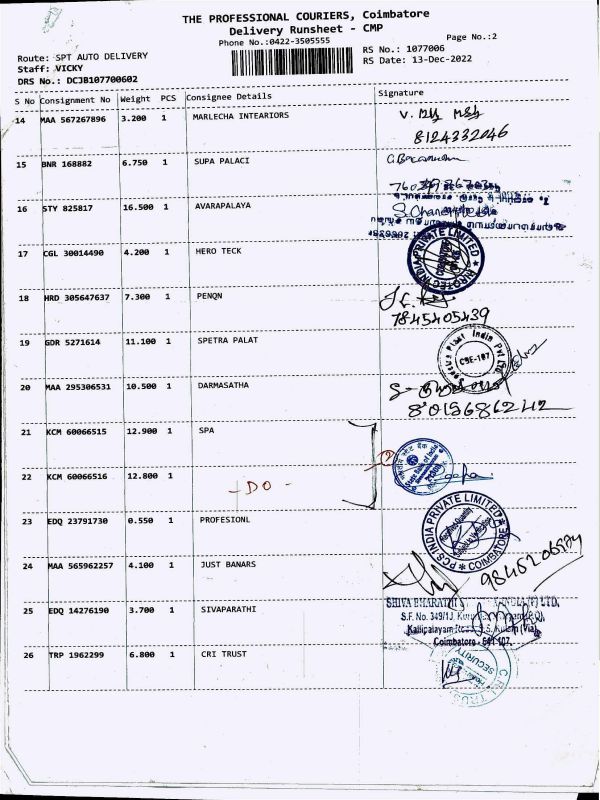 THE PROFESSIONAL COURIERS, Coimbatore
Delivery Runsheet - CMP
Phone No.:0422-3505555
Page No.:2
Route: SPT AUTO DELIVERY
Staff: VICKY
DRS No.: DCJB107700602
RS No.: 1077006
RS Date: 13-Dec-2022
S No Consignment No Weight PCS Consignee Details Signature
14 MAA 567267896 3.200 1 MARLECHA INTEARIORS
8124332046
15 BNR 168882 6.750 1 SUPA PALACI
16 STY 825817 16.500 1 AVARAPALAYA
17 CGL 30014490 4.200 1 HERO TECK
18 HRD 305647637 7.300 1 PENQN
7845405439
19 GDR 5271614 11.100 1 SPETRA PALAT
Spectra Plast India Pvt Ltd
CBE-107
20 MAA 295306531 10.500 1 DARMASATHA
8015686242
21 KCM 60066515 12.900 1 SPA
22 KCM 60066516 12.800 1
- DO -
23 EDQ 23791730 0.550 1 PROFESIONL
PCS INDIA PRIVATE LIMITED
COIMBATORE
24 MAA 565962257 4.100 1 JUST BANARS
25 EDQ 14276190 3.700 1 SIVAPARATHI
SHIVA BHARATHI
S.F. No. 349/1J,
Kallipalayam
Coimbatore
26 TRP 1962299 6.800 1 CRI TRUST
C.R.I. TRUST
SECURITY